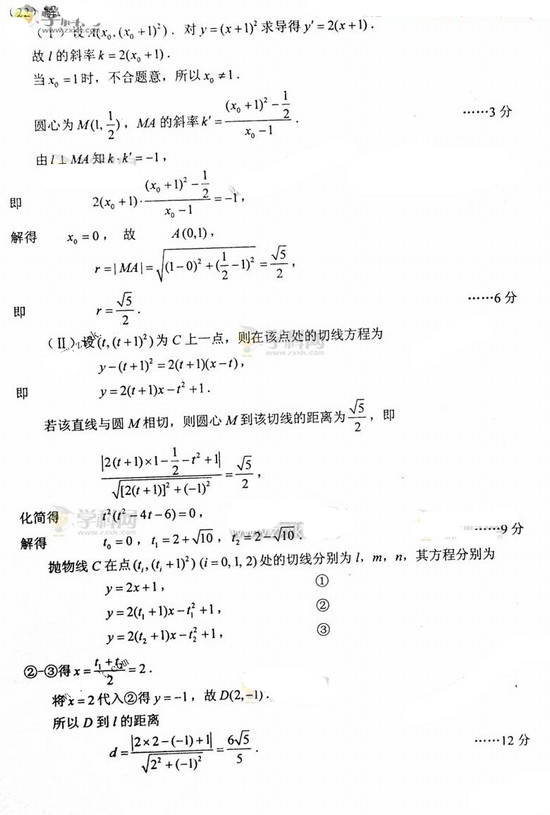 (22) 解
(Ⅰ) 设 A(x₀,(x₀+1)²). 对 y=(x+1)² 求导得 y′=2(x+1).
故 l 的斜率 k=2(x₀+1).
当 x₀=1 时,不合题意,所以 x₀≠1.
圆心为 M(1, 1/2), MA 的斜率 k′=((x₀+1)²-1/2)/(x₀-1). ……3 分
由 l⊥MA 知 k·k′=-1,
即 2(x₀+1)·((x₀+1)²-1/2)/(x₀-1)=-1,
解得 x₀=0, 故 A(0,1),
r=|MA|=√((1-0)²+(1/2-1)²)=√5/2,
即 r=√5/2. ……6 分
(Ⅱ) 设 (t,(t+1)²) 为 C 上一点,则在该点处的切线方程为
y-(t+1)²=2(t+1)(x-t),
即 y=2(t+1)x-t²+1.
若该直线与圆 M 相切,则圆心 M 到该切线的距离为 √5/2, 即
|2(t+1)×1-1/2-t²+1|/√([2(t+1)]²+(-1)²)=√5/2,
化简得 t²(t²-4t-6)=0,
解得 t₀=0, t₁=2+√10, t₂=2-√10. ……9 分
抛物线 C 在点 (tᵢ,(tᵢ+1)²) (i=0,1,2) 处的切线分别为 l, m, n, 其方程分别为
y=2x+1, ①
y=2(t₁+1)x-t₁²+1, ②
y=2(t₂+1)x-t₂²+1, ③
②-③得 x=(t₁+t₂)/2=2.
将 x=2 代入②得 y=-1, 故 D(2,-1).
所以 D 到 l 的距离
d=|2×2-(-1)+1|/√(2²+(-1)²)=6√5/5. ……12 分
学科网
www.zxxk.com